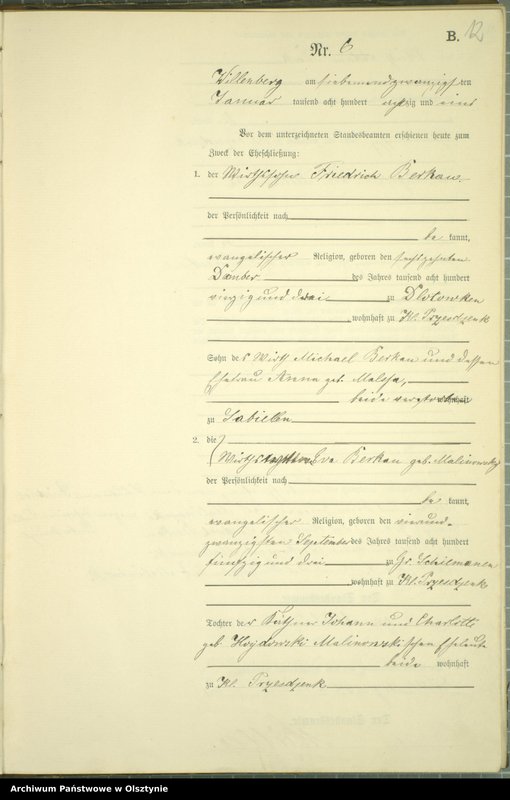 B. 12
Nr. 6
Willenberg am siebenundzwanzigsten
Januar tausend acht hundert achtzig und eins
Vor dem unterzeichneten Standesbeamten erschienen heute zum
Zweck der Eheschließung:
1. der Wirthssohn Friedrich Berkau,
der Persönlichkeit nach
be kannt,
evangelischer Religion, geboren den sechszehnten
des Jahres tausend acht hundert
vierzig und drei zu Dlotowken
, wohnhaft zu Kl. Przesdzenk
Sohn des Wirth Michael Berkau und dessen
Ehefrau Anna geb.
beide verstorben
zu Sabiellen
2. die
Eva Berkau geb. Malinowski
der Persönlichkeit nach
be kannt,
evangelischer Religion, geboren den vierund-
zwanzigsten September des Jahres tausend acht hundert
fünfzig und drei zu Gr. Schiemanen
, wohnhaft zu Kl. Przesdzenk
Tochter der Käthner Johann und Charlotte
geb. Malinowskischen Eheleute
beide wohnhaft
zu Kl. Przesdzenk
Archiwum Państwowe w Olsztynie